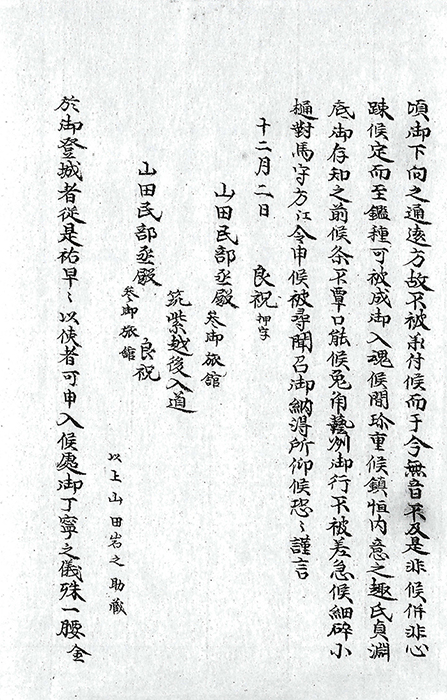 頃御下向之通遠方故不被承付候而于今無音不及是非候併非心
疎候定而至鑑種可被成御入魂候間珍重候鎮恒内意之趣氏貞淵
底御存知之前候条不覃口能候兎角藝州御行不被差急候細砕小
樋對馬守方江令申候被尋聞召御納得所仰候恐々謹言
十二月二日　良祝 押字
山田民部丞殿 参御旅館
筑紫越後入道
山田民部丞殿　良祝
参御旅館
以上山田岩之助蔵
於御登城者従是祐早々以使者可申入候處御丁寧之儀殊一腰 金